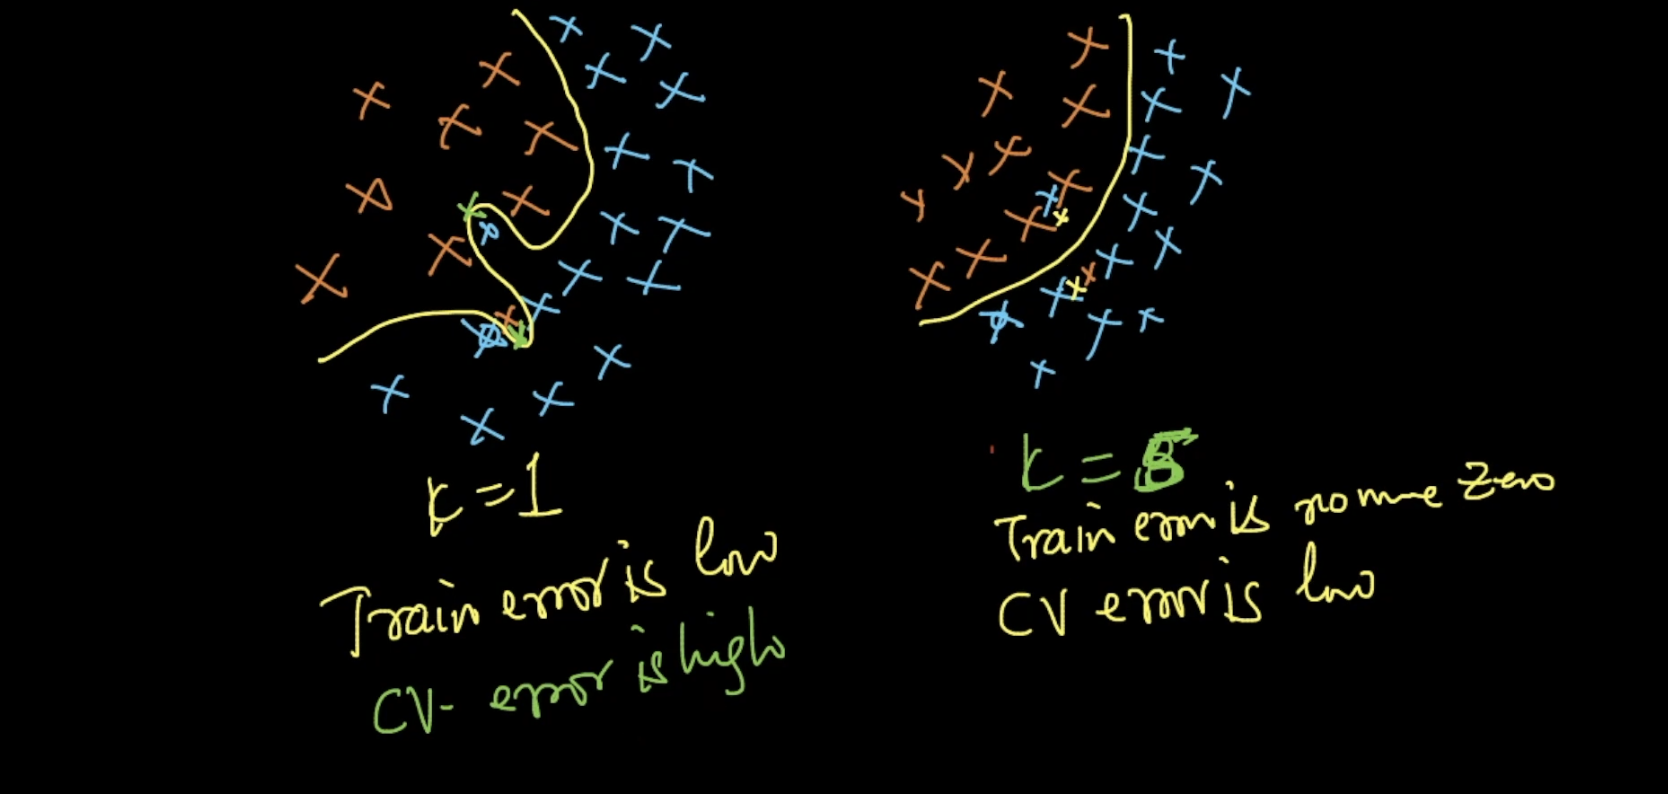 K = 1
Train error is low
CV- error is high
K = 5
Train error is no more zero
CV error is low